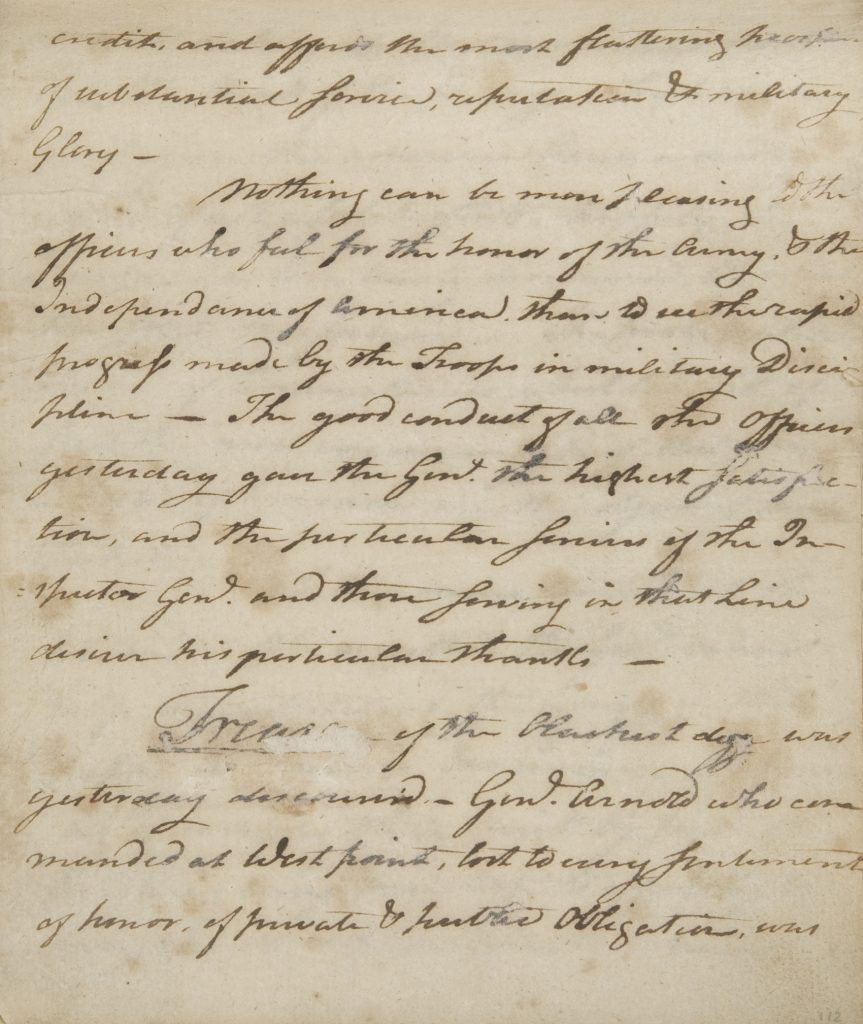 credit, and affords the most flattering
of substantial Service, reputation & military
Glory —
Nothing can be more pleasing to the
officers who feel for the honor of the Army, & the
Independance of America, than to see the rapid
progress made by the Troops in military Disci-
pline — The good conduct of all the Officers
yesterday gave the Genl. the highest Satisfac-
tion, and the particular Services of the In-
=spector Genl. and those serving in that Line
desires his particular thanks —
Treas of the blackest dye was
yesterday discovered. — Genl. Arnold who com
manded at West point, lost to every Sentiment
of honor, of private & public Obligation, was
112